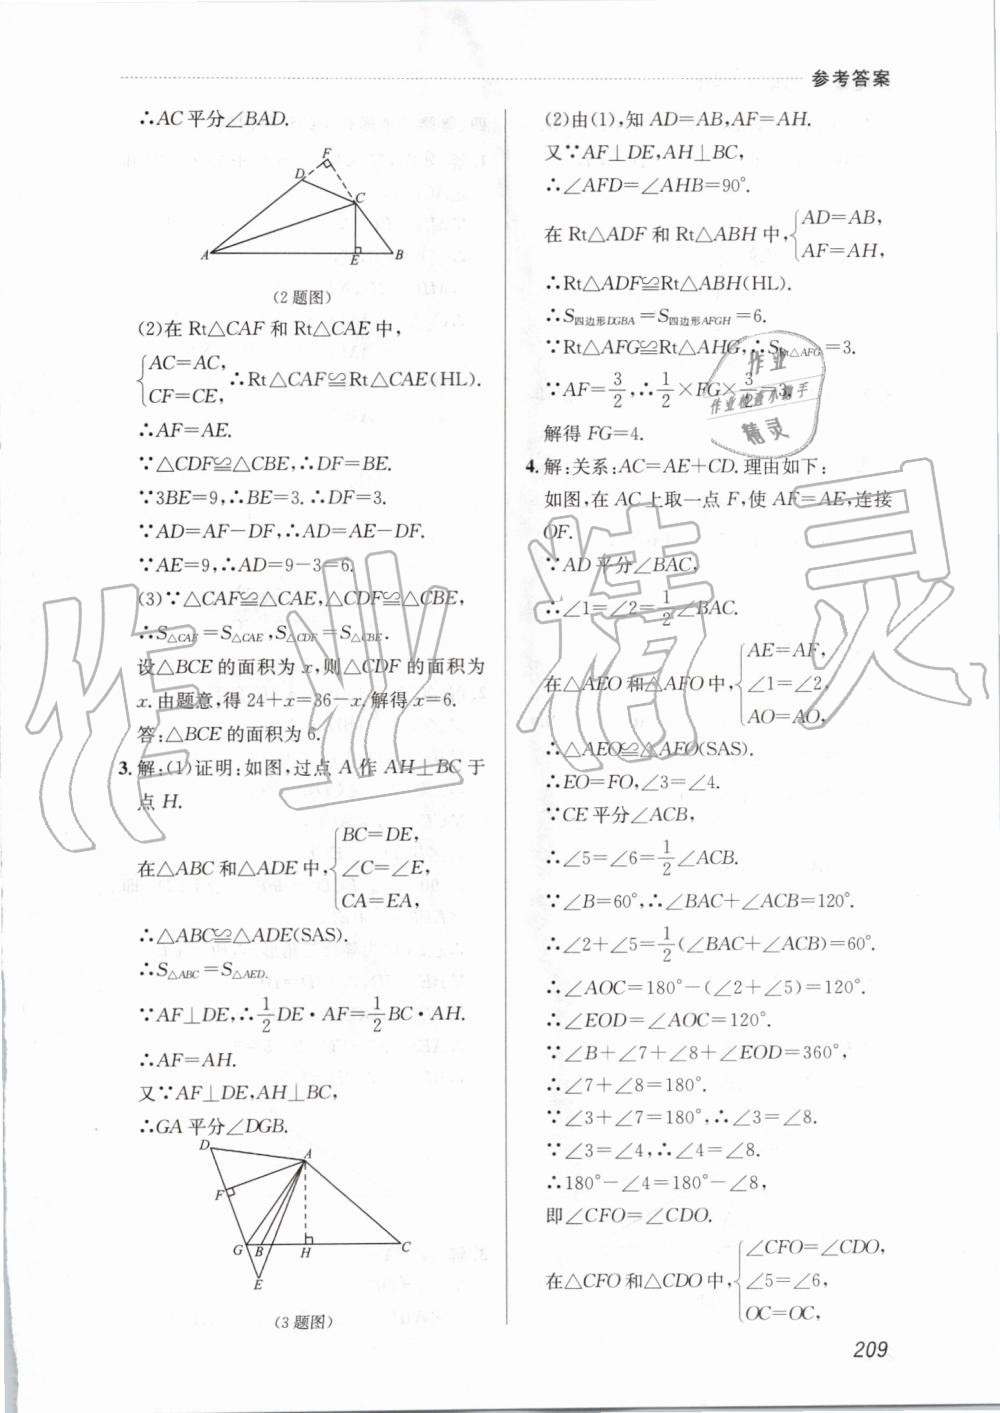 参考答案
∴AC平分∠BAD.
F
D
C
A
E
B
(2题图)
(2)在Rt△CAF和Rt△CAE中，
{AC=AC,
CF=CE,
∴Rt△CAF≌Rt△CAE(HL).
∴AF=AE.
∵△CDF≌△CBE,∴DF=BE.
∵3BE=9,∴BE=3.∴DF=3.
∵AD=AF-DF,∴AD=AE-DF.
∵AE=9,∴AD=9-3=6.
(3)∵△CAF≌△CAE,△CDF≌△CBE,
∴S△CAF=S△CAE,S△CDF=S△CBE.
设△BCE的面积为x,则△CDF的面积为
x.由题意,得24+x=36-x,解得x=6.
答:△BCE的面积为6.
3.解:(1)证明:如图,过点A作AH⊥BC于
点H.
在△ABC和△ADE中,{BC=DE,
∠C=∠E,
CA=EA,
∴△ABC≌△ADE(SAS).
∴S△ABC=S△AED.
∵AF⊥DE,∴1/2DE·AF=1/2BC·AH.
∴AF=AH.
又∵AF⊥DE,AH⊥BC,
∴GA平分∠DGB.
D
A
F
G
B
H
C
E
(3题图)
(2)由(1),知AD=AB,AF=AH.
又∵AF⊥DE,AH⊥BC,
∴∠AFD=∠AHB=90°.
在Rt△ADF和Rt△ABH中,{AD=AB,
AF=AH,
∴Rt△ADF≌Rt△ABH(HL).
∴S四边形DGBA=S四边形AFGH=6.
∵Rt△AFG≌Rt△AHG,∴SRt△AFG=3.
∵AF=3/2,∴1/2×FG×3/2=3.
解得FG=4.
4.解:关系:AC=AE+CD.理由如下:
如图,在AC上取一点F,使AF=AE,连接
OF.
∵AD平分∠BAC,
∴∠1=∠2=1/2∠BAC.
在△AEO和△AFO中,{AE=AF,
∠1=∠2,
AO=AO,
∴△AEO≌△AFO(SAS).
∴EO=FO,∠3=∠4.
∵CE平分∠ACB,
∴∠5=∠6=1/2∠ACB.
∵∠B=60°,∴∠BAC+∠ACB=120°.
∴∠2+∠5=1/2(∠BAC+∠ACB)=60°.
∴∠AOC=180°-(∠2+∠5)=120°.
∴∠EOD=∠AOC=120°.
∵∠B+∠7+∠8+∠EOD=360°,
∴∠7+∠8=180°.
∵∠3+∠7=180°,∴∠3=∠8.
∵∠3=∠4,∴∠4=∠8.
∴180°-∠4=180°-∠8,
即∠CFO=∠CDO.
在△CFO和△CDO中,{∠CFO=∠CDO,
∠5=∠6,
OC=OC,
209
作业精灵
作业
作业检查小助手
精灵